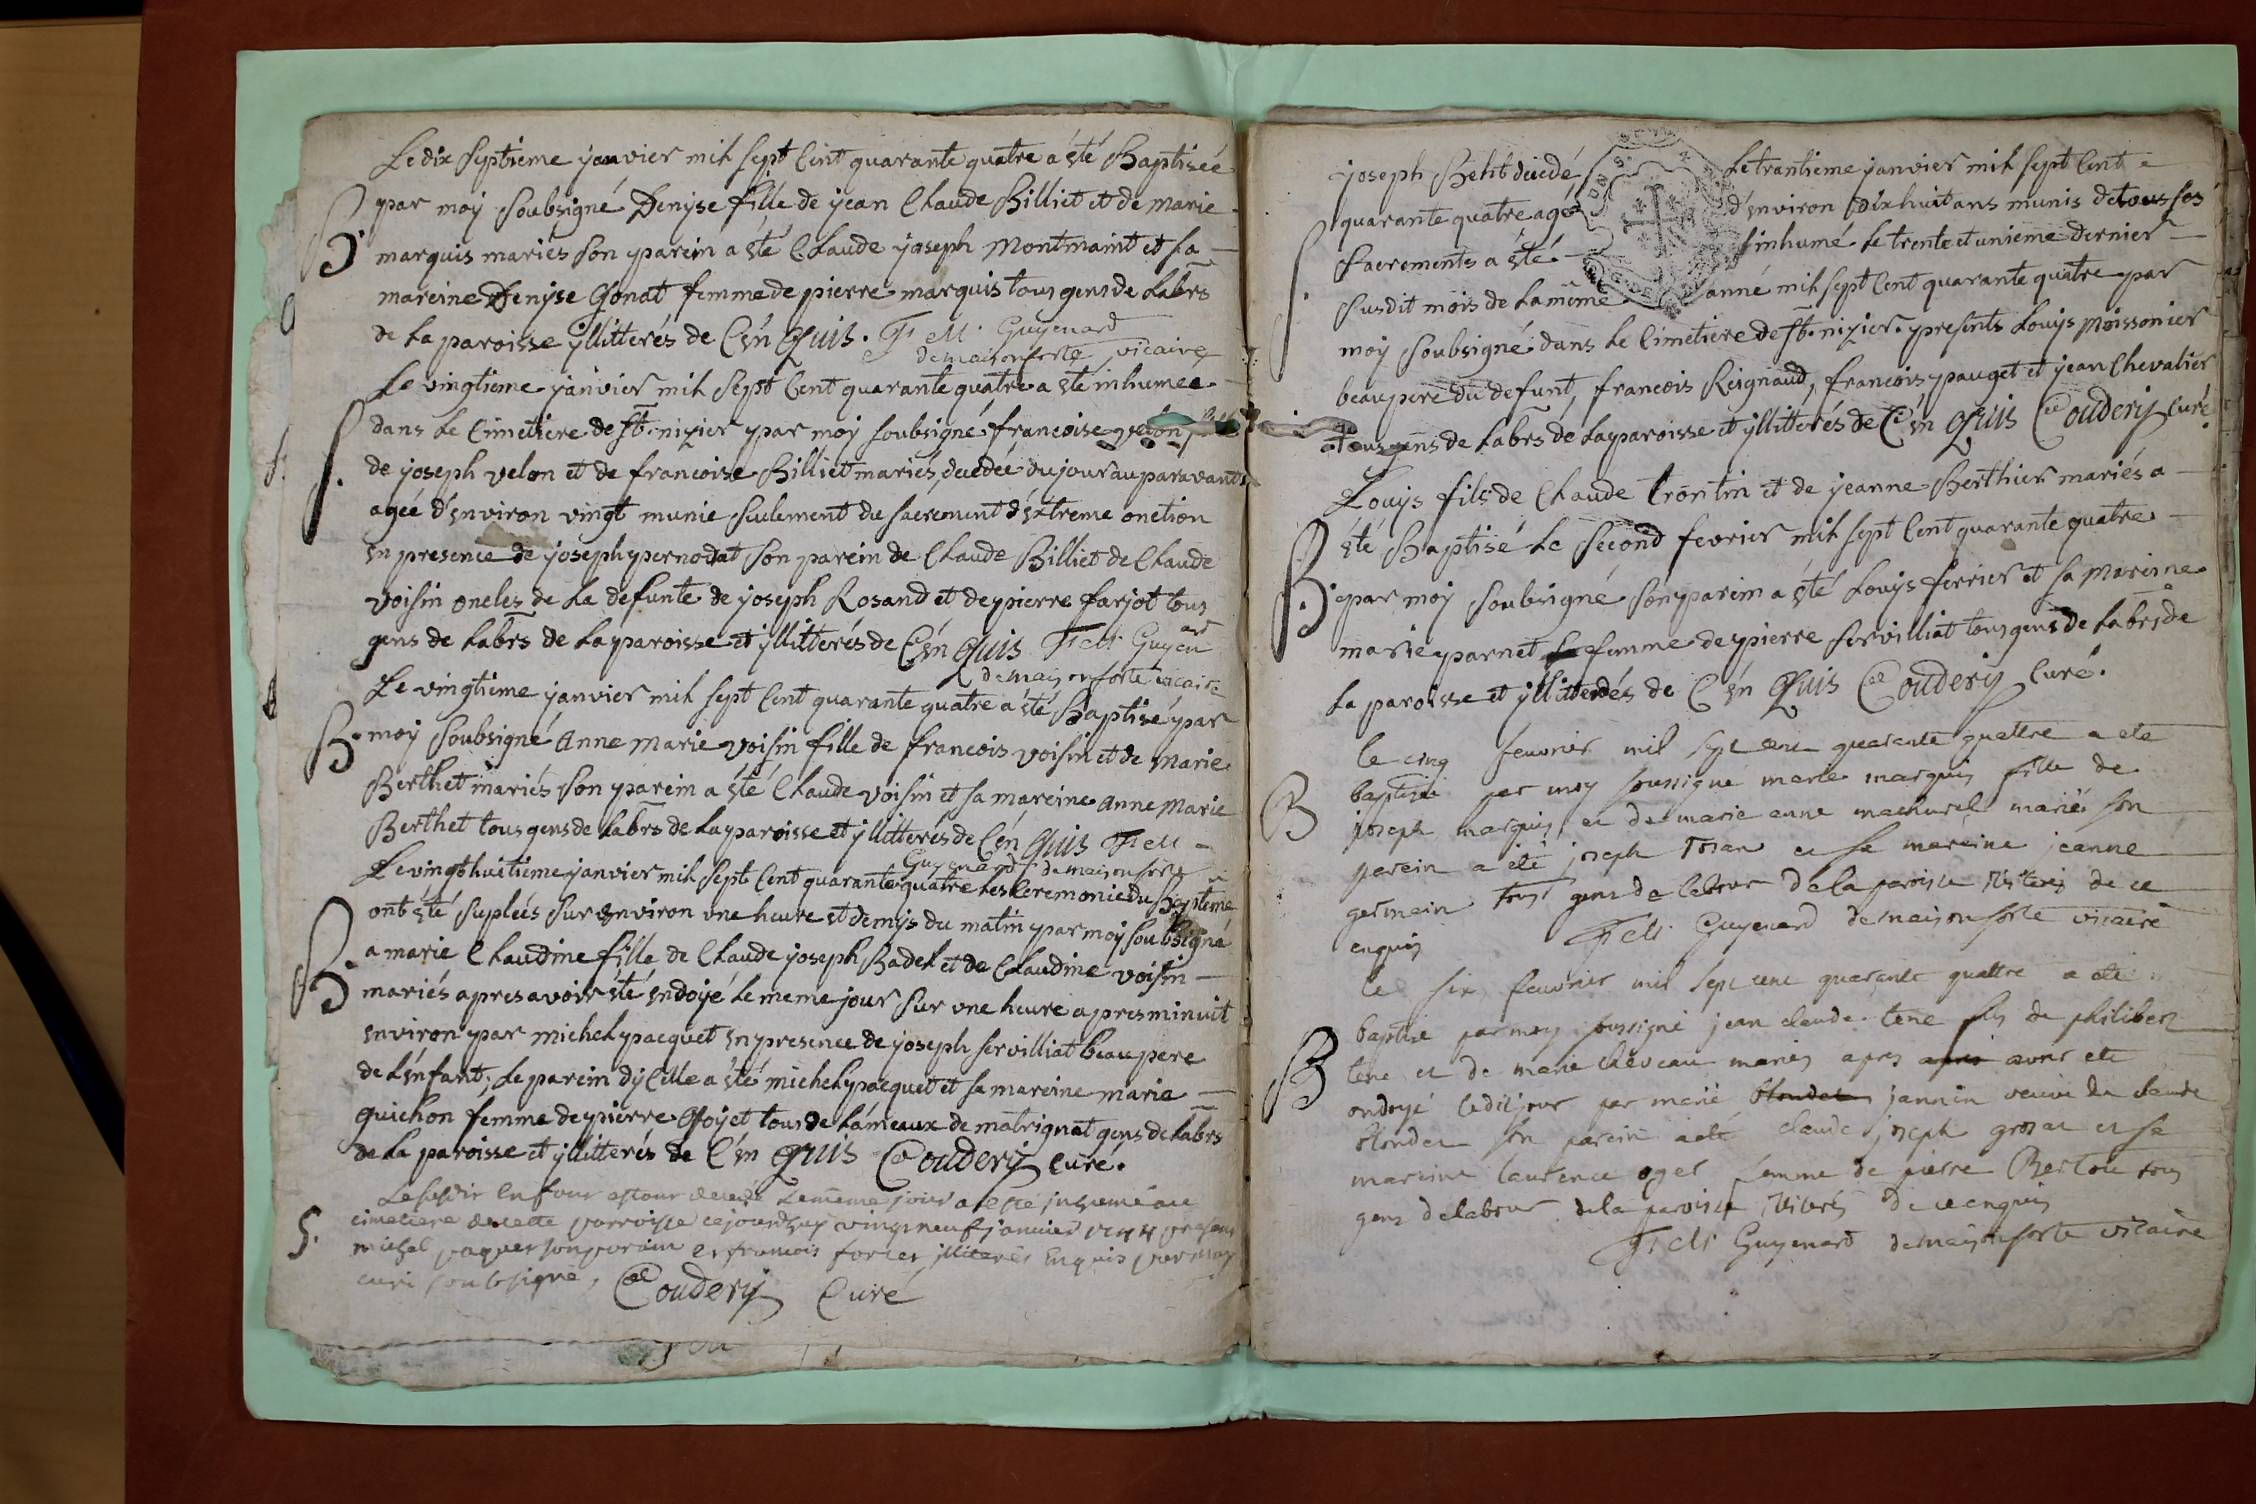 Le dix septieme janvier mil sept Cent quarante quatre a été Baptiseé
B. par moy soubsigné Denyse fille de jean Claude Billiet et de marie
marquis mariés son parein a été Claude joseph Montmaint et sa
mareine Denyse Gonat femme de pierre marquis tous gens de Labrs
de La paroisse yllitterés de C'én Quis. F M Guyenard
demaisonforte vicaire
Le vingtieme janvier mil sept Cent quarante quatre a été inhumeé
dans Le Cimetiere de st. nizier par moy soubsigné francoise velon
S. de joseph velon et de francoise Billiet mariés, decedeé du jour auparavant
ageé d'environ vingt munie seulement du sacrement d'extreme onction
en presence de joseph pernodat son parein de Claude Billiet de Claude
voisin oncles de La defunte de joseph Rosand et de pierre farjot tous
gens de Labrs de La paroisse et yllitterés de C'én Quis F M Guyenard
demaisonforte vicaire
Le vingtieme janvier mil sept Cent quarante quatre a été Baptisé par
B. moy soubsigné Anne Marie voisin fille de francois voisin et de Marie
Berthet mariés son parein a été Claude voisin et sa mareine Anne Marie
Berthet tous gens de Labrs de La paroisse et yllitterés de C'én Quis F M
Guyenard demaisonforte
Le vingt huitieme janvier mil sept Cent quarante quatre Les Ceremonie du Bapteme
ont été supleés sur environ une heure et demis du matin par moy soubsigné
B. a marie Claudine fille de Claude joseph Badel et de Claudine voisin
mariés apres avoir été endoyé Le meme jour sur une heure apres minuit
environ par michel pacquet en presence de joseph servilliat beaupere
de L'enfant, Le parein d'yCelle a été michel pacquet et sa mareine marie
Guichon femme de pierre Goyet tous de Lámeaux de matrignat gens de Labrs
de La paroisse et yllitterés de C'én Quis Coudery Curé.
Le meme jour a esté inhumé au
S. cimetiere de cette parroisse cejourdhuy vingt neuf janvier 1744 presens
michel paquet son parain et francois illiterés Enquis par moy
curé soubsigné, Coudery Curé
joseph Petit decedé Le trantieme janvier mil sept Cent
quarante quatre agé d'environ dix huit ans munis de tous ses
S. sacrements a été inhumé Le trente et unieme dernier
susdit mois de La même anné mil sept Cent quarante quatre par
moy soubsigné dans Le Cimetiere de st. nizier. presents Louys Moissonier
beaupere du defunt, francois Reignaud, francois pauget et jean Chevalier
tous gens de Labrs de La paroisse et yllitterés de C'én Quis Coudery Curé.
Louys fils de Claude Trontin et de jeanne Berthier mariés a
été Baptisé Le second fevrier mil sept Cent quarante quatre
B. par moy soubsigné son parein a été Louys ferrier et sa Mareine
marie parnet femme de pierre servilliat tous gens de Labrs de
La paroisse et yllitterés de C'én Quis Coudery Curé.
le cinq feuvrier mil sept cent quarante quattre a ete
B baptisé par moy soussigné marie marquis fille de
joseph marquis et de marie anne mariés son
parein a été joseph et sa mareine jeanne
germain tous gens de labour de la paroisse illiterés de ce
enquis F M Guyenard demaisonforte vicaire
le six feuvrier mil sept cent quarante quattre a ete
B baptisé par moy soussigné jean claude tene fils de philibert
tene et de marie mariés apres avoir ete
ondoyé ledit jour par marie jannin veuve de claude
blondet son parein a été claude joseph et sa
mareine laurence femme de pierre tous
gens de labour de la paroisse illiterés de ce enquis
F M Guyenard demaisonforte vicaire